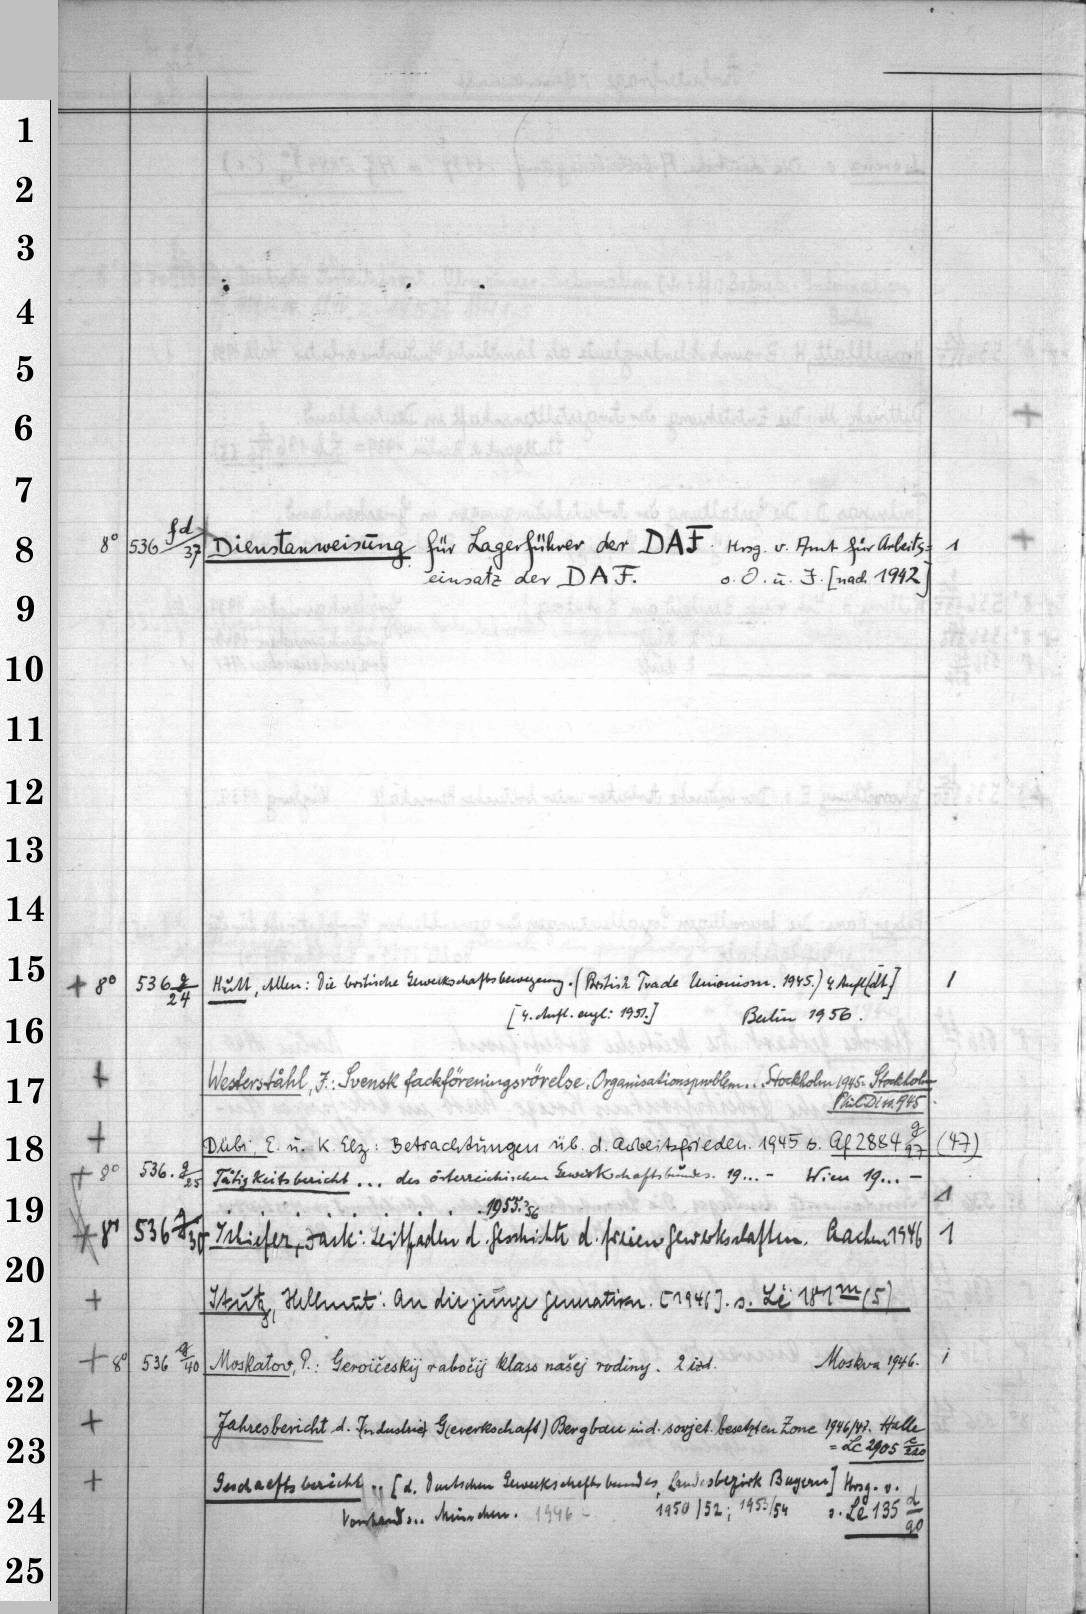 1
2
3
4
5
6
7
8
8° 536 fd/37 Dienstanweisung für Lagerführer der DAF. Hrsg. v. Amt für Arbeits= 1
einsatz der DAF. o. O. u. J. [nach 1942]
9
10
11
12
13
14
15
+ 8° 536 g/24 Hutt, Allen: Die britische Gewerkschaftsbewegung. (British Trade Unionism. 1945.) 4. Aufl. [dt.] 1
16
[4. Aufl. engl: 1951.] Berlin 1956.
17
+ Westerståhl, J.: Svensk fackföreningsrörelse. Organisationsproblem... Stockholm 1945. Stockholm
Phil. Diss. 1945.
18
+ Dübi, E. u. K. Ilg: Betrachtungen üb. d. Arbeitsfrieden. 1945 s. Af 2884 g/97 (47)
+ 8° 536. g/25 Tätigkeitsbericht ... des österreichischen Gewerkschaftsbundes. 19...- Wien 19... -
19
1955. 56 1
+ 8° 536 g/30 Schiefer, Jack: Leitfaden d. Geschichte d. freien Gewerkschaften. Aachen 1946 1
20
+ Stutz, Hellmut: An die junge Generation. [1946]. s. Le 181 m (5)
21
+ 8° 536 g/40 Moskatov, P.: Geroičeskij rabočij klass našej rodiny. 2 izd. Moskva 1946. 1
22
+ Jahresbericht d. I(ndustrie) G(ewerkschaft) Bergbau in d. sovjet. besetzten Zone 1946/47. Halle
23
= Lc 2905 c/220
+ Geschaeftsbericht ,, [d. Deutschen Gewerkschaftsbundes, Landesbezirk Bayern] Hrsg. v.
24
Vorstand... München. 1946 - 1950/52; 1953/54 s. Le 135 d/90
25